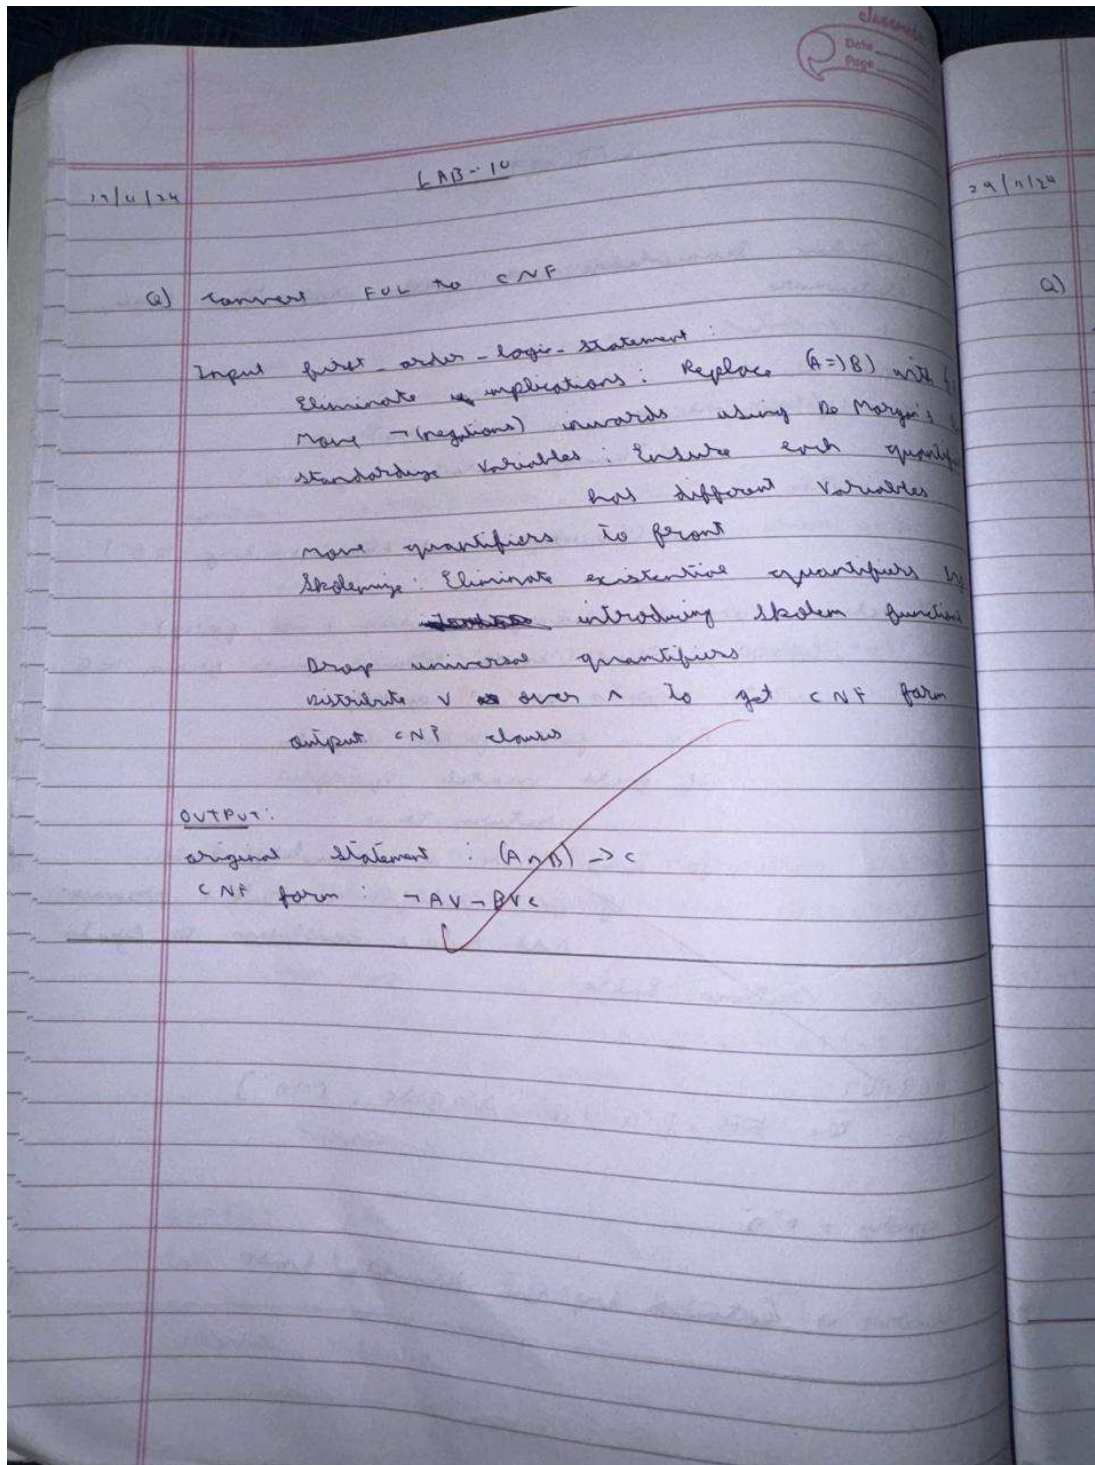 classmate
Date
Page
LAB-10
29/11/24
Q) Convert FOL to CNF
Input first-order-logic-statement:
Eliminate implications: Replace (A=>B) with
Move ¬(negations) inwards using De Morgan's
Standardize variables: Ensure each
has different variables
Move quantifiers to front
Skolemize: Eliminate existential quantifiers
introducing skolem function
Drop universal quantifiers
Distribute ∨ over ∧ to get CNF form
output CNF clauses
OUTPUT:
original statement : (A∧B) -> C
CNF form : ¬A∨¬B∨C
29/11/24
Q)